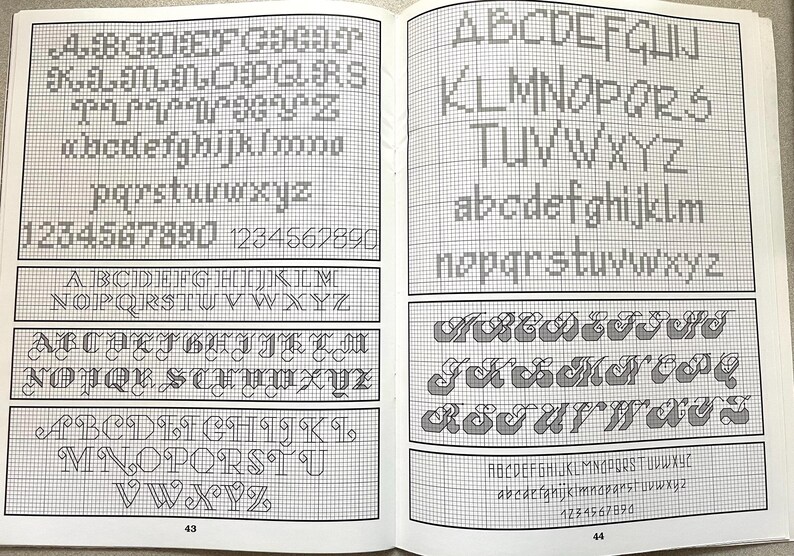 ABCDEFGHIJ
KLMNOPQRS
TUVWXYZ
abcdefghijklmno
pqrstuvwxyz
1234567890 1234567890
ABCDEFGHIJKLM
NOPQRSTUVWXYZ
ABCDEFGHIJKLM
NOPQRSTUVWXYZ
ABCDEFGHIJKL
MNOPQRSTU
VWXYZ
43
ABCDEFGHIJ
KLMNOPQRS
TUVWXYZ
abcdefghijklm
nopqrstuvwxyz
ABCDEFGHI
JKLMNOPQ
RSTUVWXYZ
ABCDEFGHIJKLMNOPQRSTUVWXYZ
abcdefghijklmnopqrstuvwxyz
1234567890
44